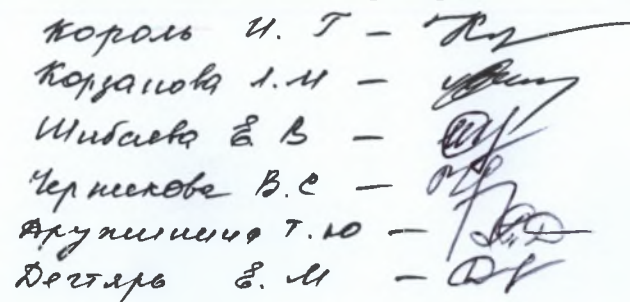 Король И. Г –
Корзанова Л.М –
Шибаева Е В –
Черникова В.С –
Дружинина Т.Ю –
Дегтярь Е. М –